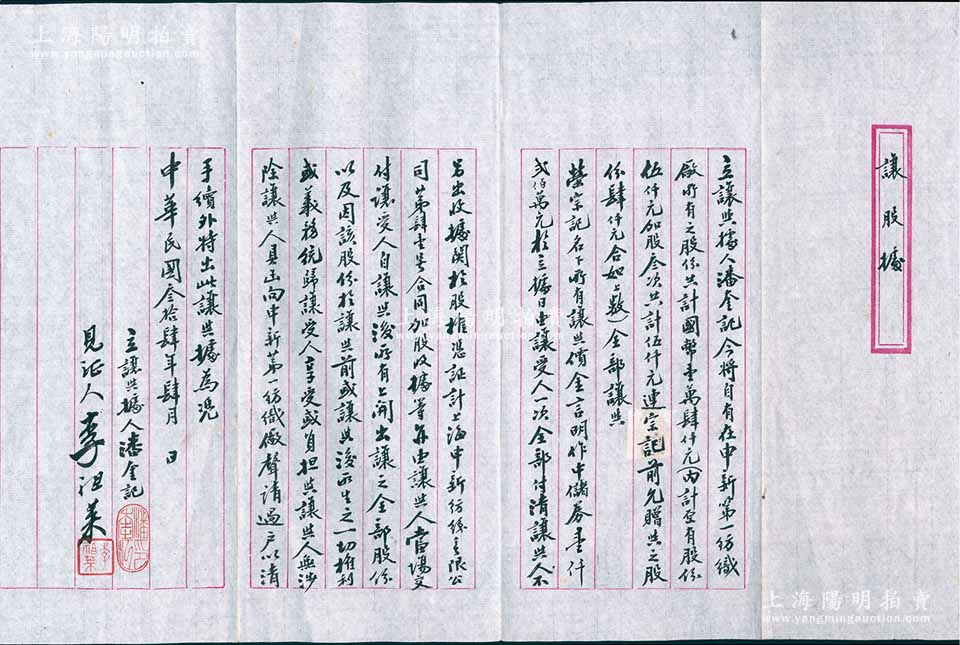 讓股據
立讓與據人潘奎記今將自有在申新第一紡織
廠所有之股份共計國幣壹萬肆仟元(內計原有股份
伍仟元加股叁次共計伍仟元連宗記前允贈與之股
份肆仟元合如上數)全部讓與
榮宗記名下所有讓與價金言明作中儲券壹仟
弍伯萬元於立據日由讓受人一次全部付清讓與人不
另出收據關於股權憑証計上海申新紡織無限公
司第肆壹号合同加股收據等亦由讓與人當場交
付讓受人自讓與後所有上開出讓之全部股份
以及因該股份於讓與前或讓與後所生之一切權利
或義務統歸讓受人享受或負担與讓與人無涉
除讓與人具函向申新第一紡織廠聲請過戶以清
手續外特出此讓與據為憑
中華民國叁拾肆年肆月 日
立讓與據人潘奎記
見证人 李
上海陽明拍賣
www.yangmingauction.com
上海陽明拍賣
www.yangmingauction.com
上海陽明拍賣